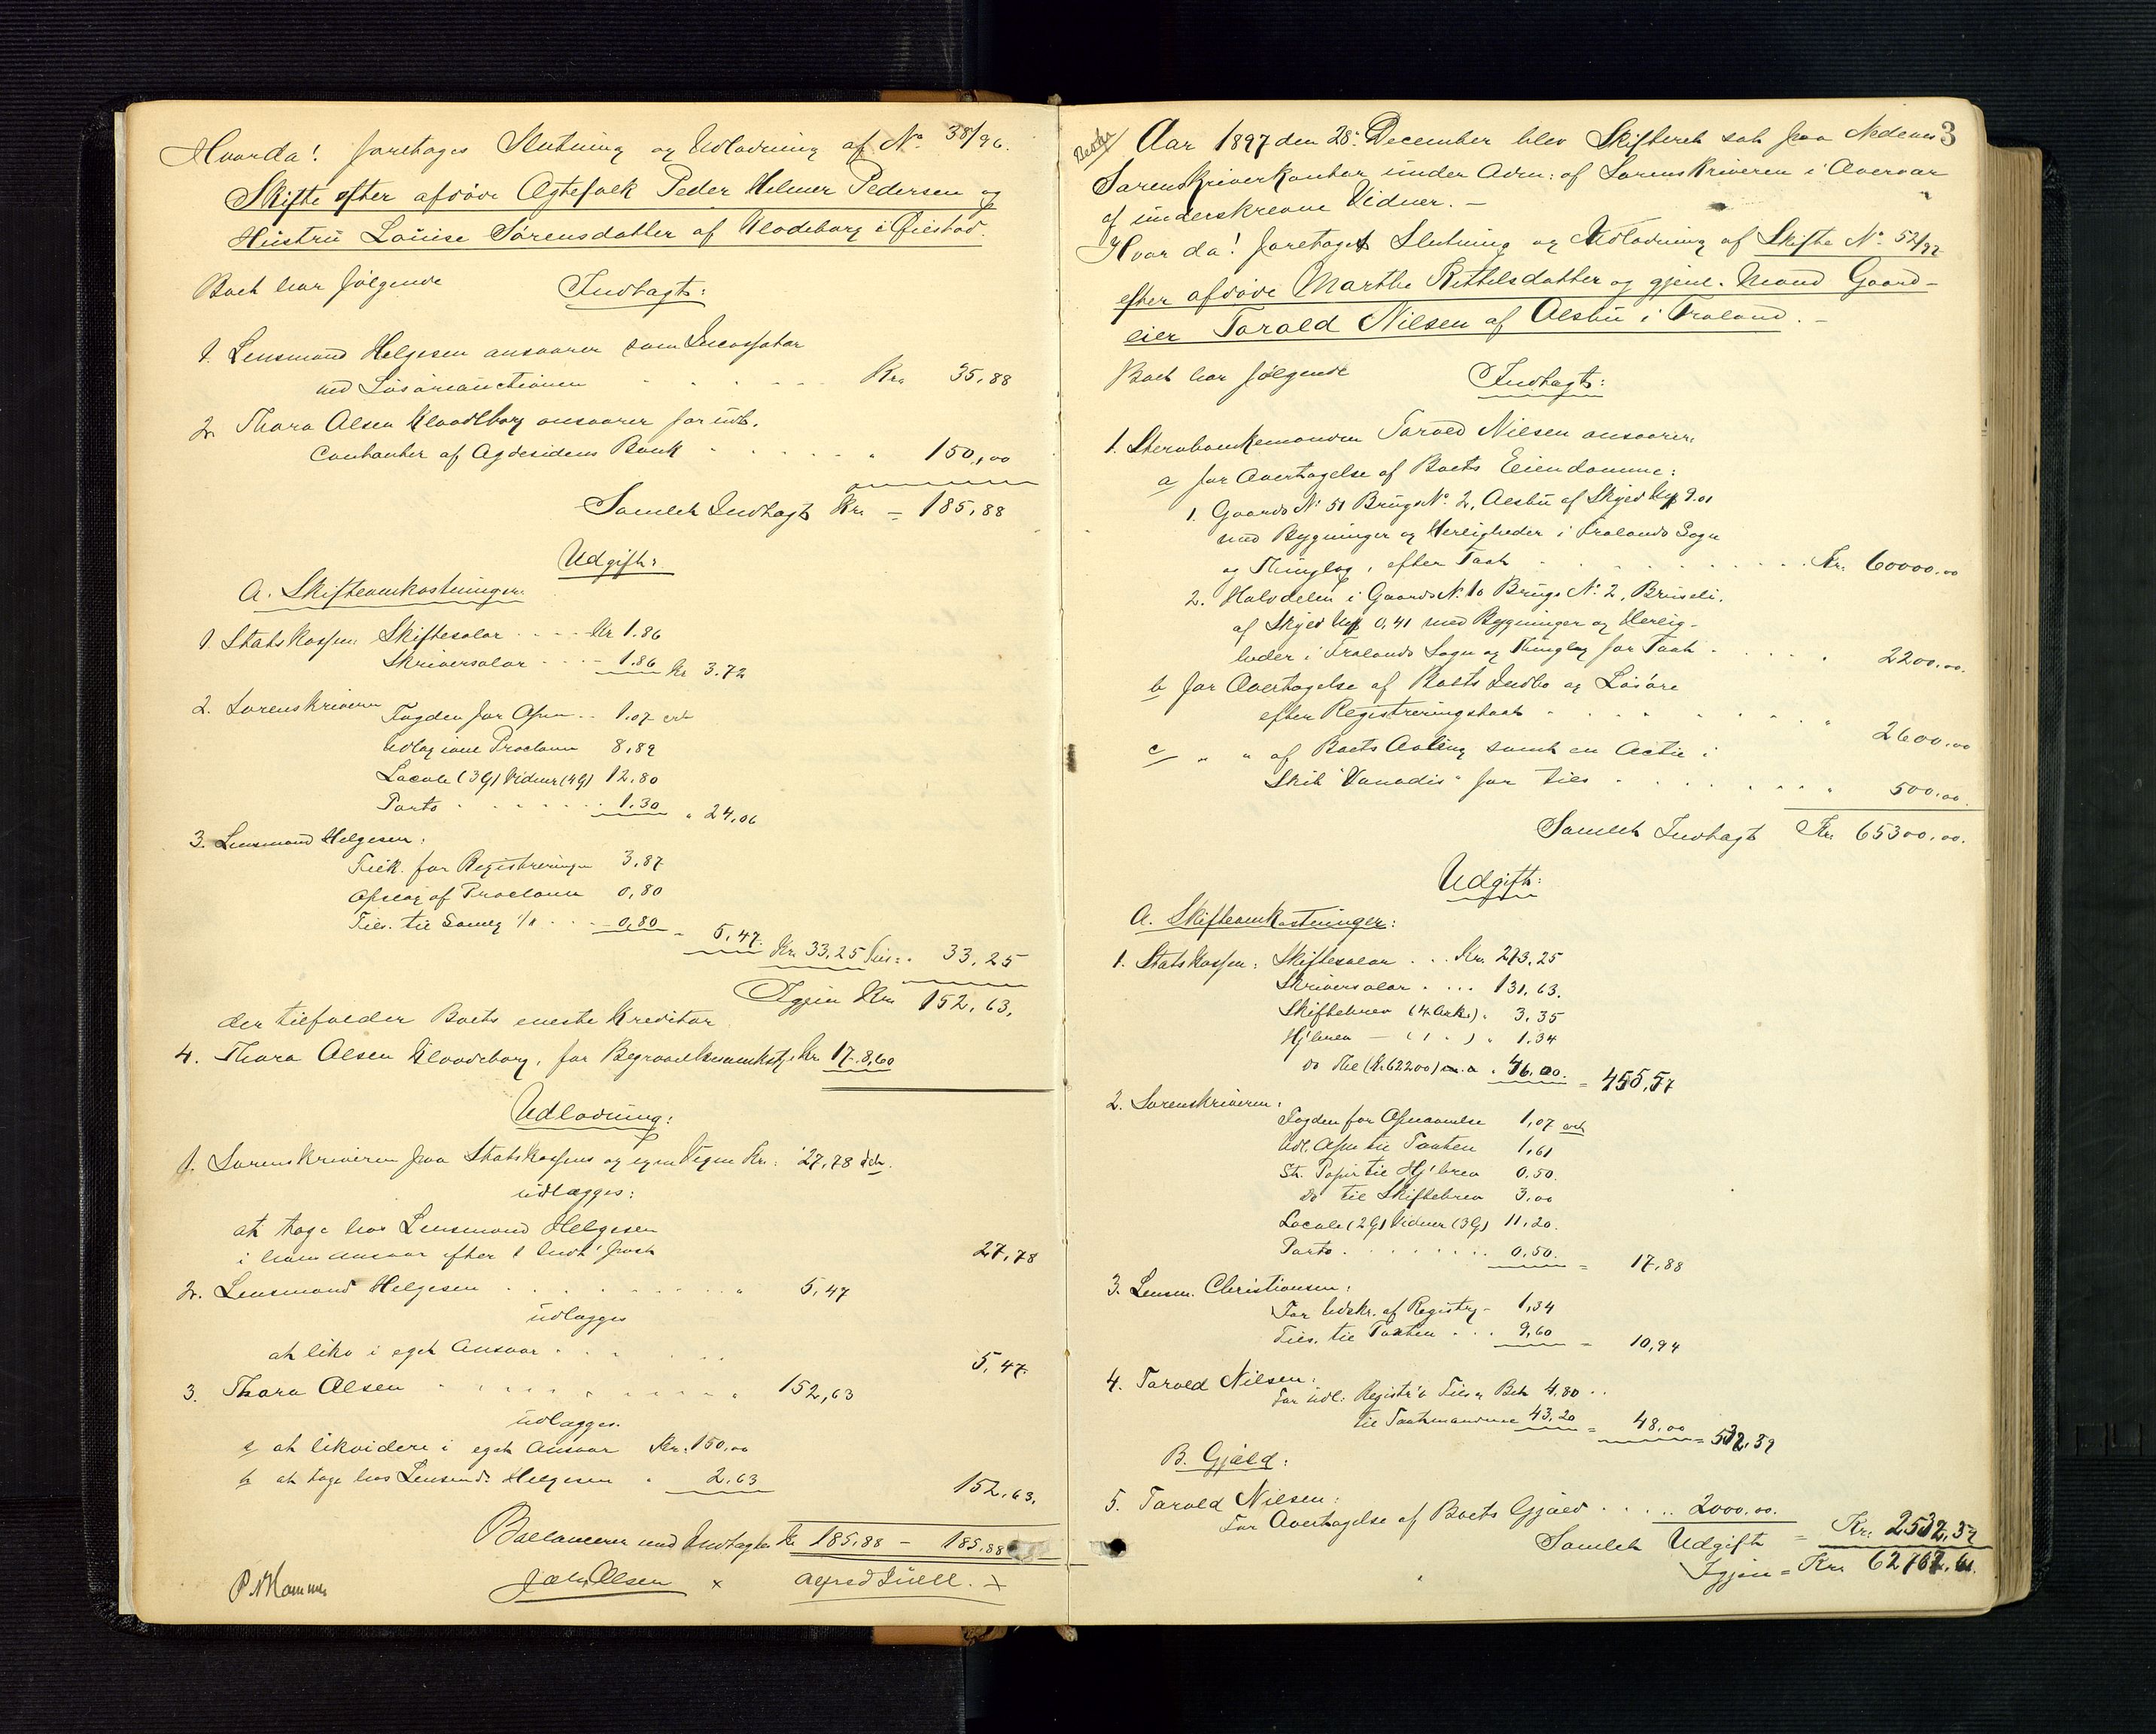 Hvorda! foretoges Slutning og Udlodning af No. 38/96.
Skifte efter afdøde Ægtefolk Peder Helmer Pedersen og
Hustru Louise Sørensdatter af Klodeborg i Øiestad.
Boet har følgende
Indtægt:
1. Lensmand Helgesen ansvarer som Incassator
ved Løsøreauctionen Kr. 35,88
2. Thora Olsen Kloddeborg ansvarer for udb.
Contanter af Agdesidens Bank " 150,00
Samlet Indtægt Kr. = 185,88
Udgift:
A. Skifteomkostninger:
1. Statskassen: Skiftesalar Kr. 1.86
Skriversalar 1.86 Kr 3.72
2. Sorenskriveren Fogden for Afsn. 1.07
Udlæg i ane Proclama 8,89
Locale (3G) Vidner (4G) 12,80
Porto 1.30 " 24,06
3. Lensmand Helgesen:
Tilk. for Registreringen 3,87
Opslag af Proclama 0,80
Tils. til Samlg 1/1 0,80 " 5,47. Kr. 33,25 Tils: " 33,25
Igjen Kr. 152,63.
der tilfalder Boets eneste Kreditor
4. Thora Olsen Kloddeborg, for Begravelsesomkst. Kr. 178,60
Udlodning:
1. Sorenskriveren paa Statskassens og egne Vegne Kr. 27,78
udlægges:
at tage hos Lensmand Helgesen
i ham ansvar efter 1 Indt. post 27,78
2. Lensmand Helgesen " 5,47
udlægges
at likv. i eget Ansvar 5,47.
3. Thora Olsen " 152,63
udlægges.
a at likvidere i eget Ansvar Kr. 150,00
b at tage hos Lensmd. Helgesen " 2.63 152,63.
Ballancerer med Indtægten Kr 185,88 – 185,88
Joh. Olsen x Alfred Juell. x
3
Aar 1897 den 28. December blev Skifteret sat paa Nedenes
Sorenskriverkontor under Adm: af Sorenskriveren i Overvær
af underskrevne Vidner. –
Hvor da! foretoges Slutning og Udlodning af Skifte No. 52/97
efter afdøde Marthe Kittelsdatter og gjenl. Mand Gaard-
eier Tarald Nilsen af Olsbu i Froland. –
Boet har følgende
Indtægt:
1. Stervboenkemanden Tarald Nilsen ansvarer:
a for Overtagelse af Boets Eiendomme:
1. Gaards No. 51 Brugs No. 2, Olsbu af Skyld Mk 9.01
med Bygninger og Herligheder i Frolands Sogn
og Thinglag, efter Taxt Kr. 60000.00
2. Halvdelen i Gaards No. 10 Brugs No. 2, Bruseli.
af Skyld Mk 0,41 med Bygninger og Herlig-
heder i Frolands Sogn og Thinglag for Taxt " 2200.00.
b for Overtagelse af Boets Indbo og Løsøre
efter Registreringstaxt " 2600.00
c " " af Boets Avling samt en Actie i
Skib "Vanadis" for tils " 500.00.
Samlet Indtægt Kr. 65300.00.
Udgift:
A. Skifteomkostninger:
1. Statskassen: Skiftesalar Kr. 273.25
Skriversalar 131.63.
Skiftebrev (4 Ark.) " 3,35
Hj'brev – (1 " ) " 1,34
do Thl (Kr. 62200) m.a. " 46.00. = 455,57
2. Sorenskriveren:
Fogden for Afsnævnelse 1,07
Udl. Afsn til Taxten 1,61
St. Papir til Hj'brev 0,50.
do til Skiftebrev 3,00
Locale (2G) Vidner (3G) 11,20.
Porto 0,50. = 17,88
3. Lensm. Christiansen:
For Udskr. af Registrg – 1,34
Tils. til Taxten 9,60 = 10,94
4. Tarald Nilsen:
For udl: Registr'g Tils " Bet 4,80
til Taxtmændene 43,20 = 48,00 = 532,39
B. Gjæld:
5. Tarald Nilsen:
For Overtagelse af Boets Gjæld 2000.00.
Samlet Udgift = Kr. 2532,39
Igjen = Kr. 62767.61.